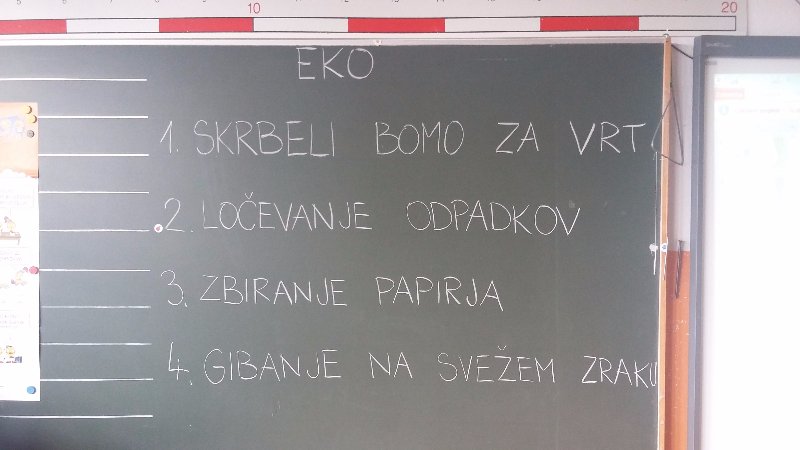 10
20
EKO
1. SKRBELI BOMO ZA VRT.
2. LOČEVANJE ODPADKOV
3. ZBIRANJE PAPIRJA
4. GIBANJE NA SVEŽEM ZRAKU